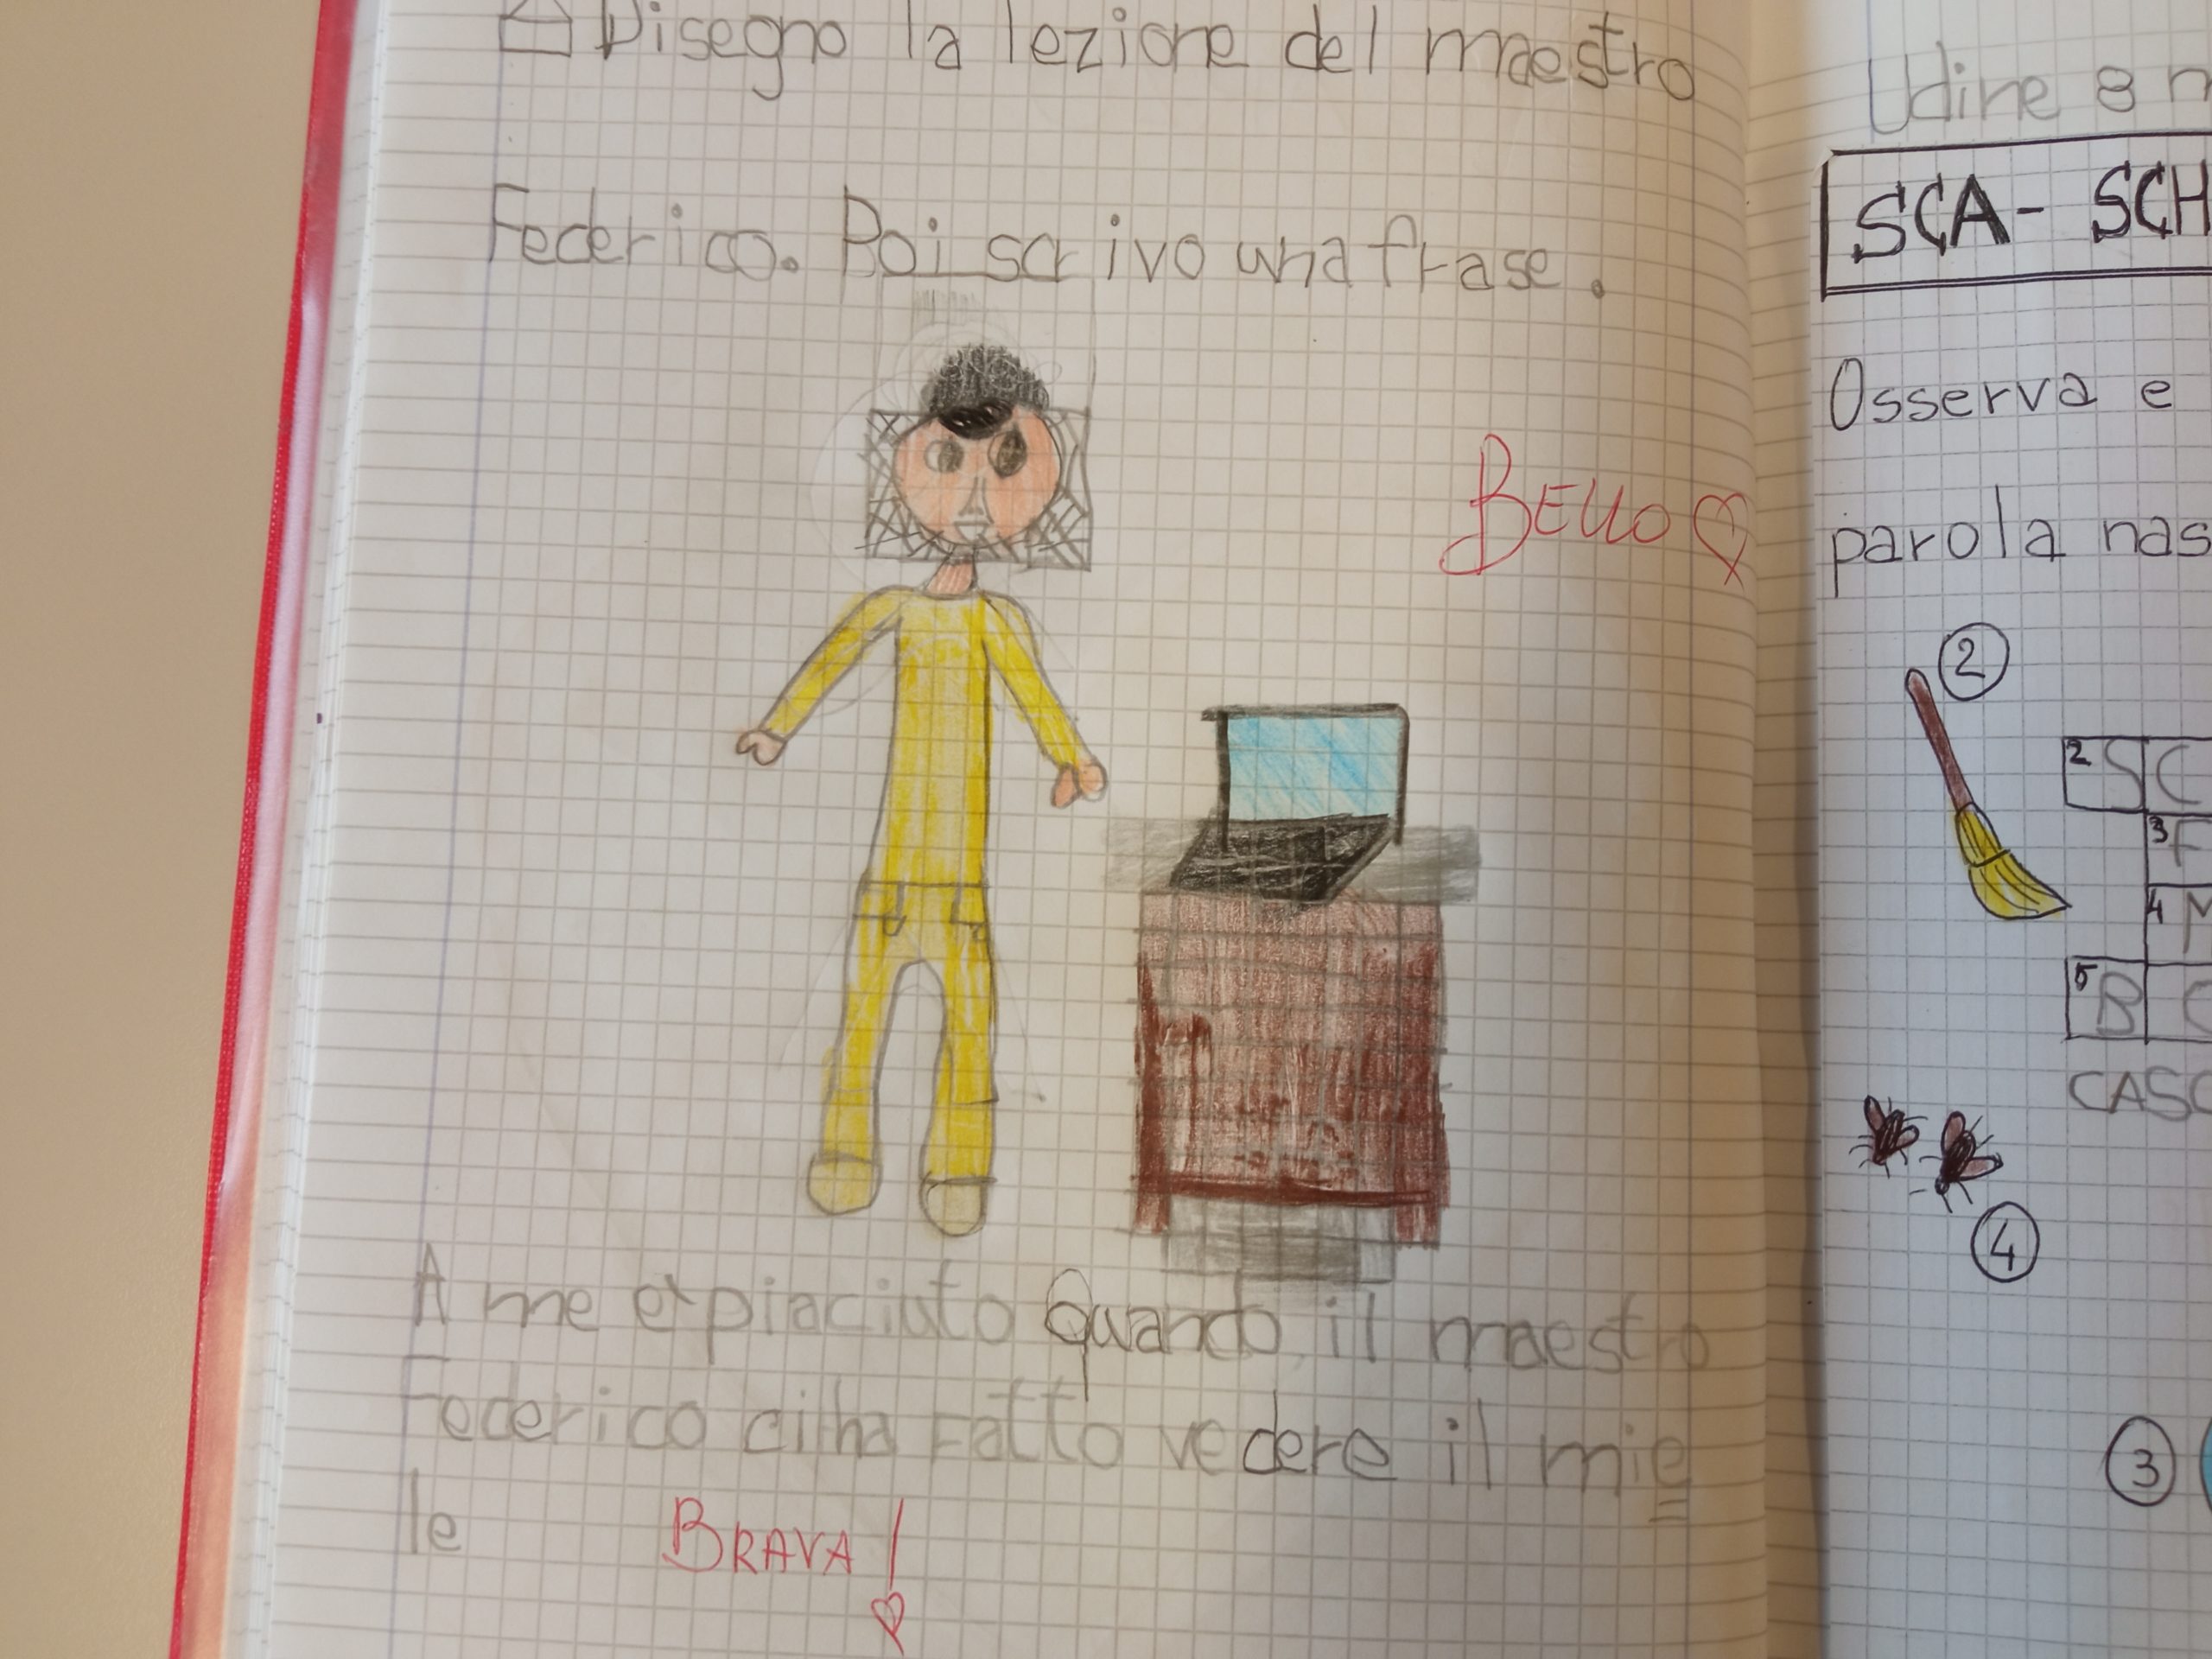 Disegno la lezione del maestro
Federico. Poi scrivo una frase.
BELLO
A me è piaciuto Quando il maestro
Federico ci ha Fatto vedere il mie
le
BRAVA!
Udine 8
SCA- SCH
Osserva e
parola nas
2
2 S C
3 F
4 M
5 B C
CASC
4
3